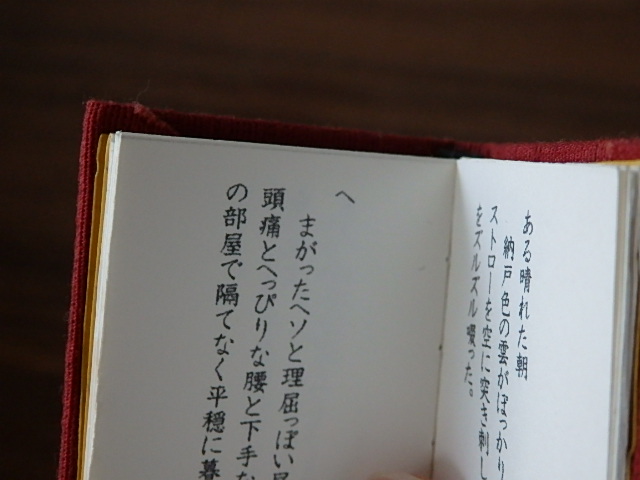 ある晴れた朝
納戸色の雲がぽっかり
ストローを空に突き刺し
をズルズル啜った。
へ
まがったヘソと理屈っぽい
頭痛とへっぴりな腰と下手な
の部屋で隔てなく平穏に暮